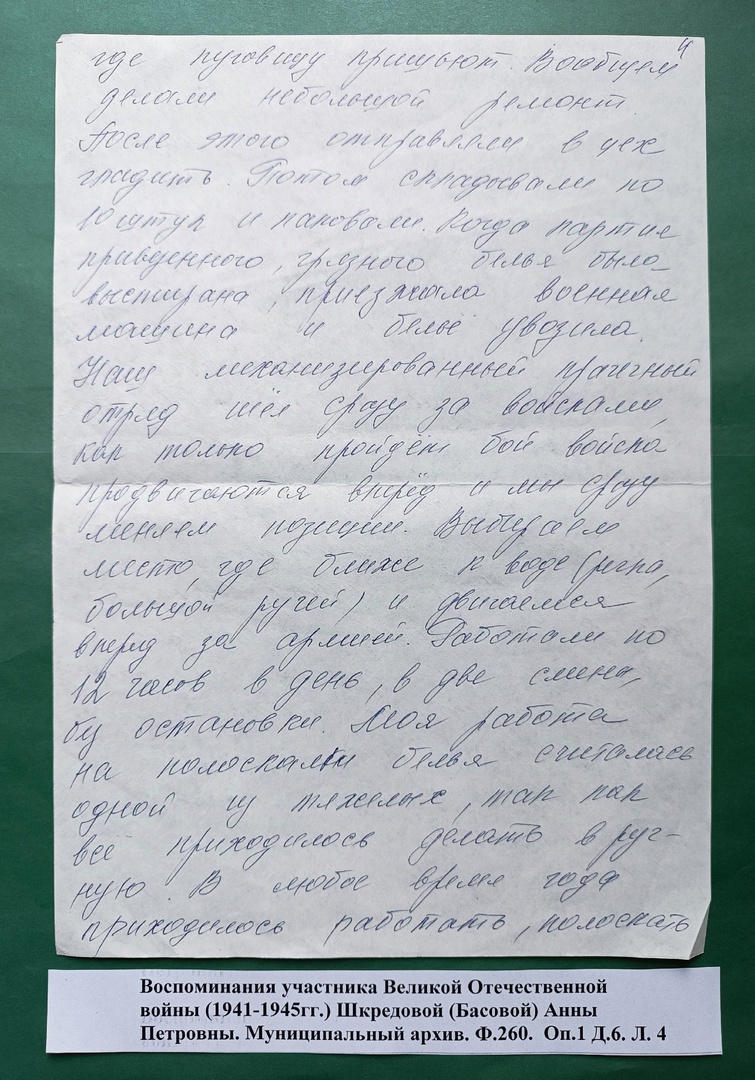 4
где пуговицу пришьют. Вообщем
делали небольшой ремонт
После этого отправляли в цех
гладить. Потом складывали по
10 штук и паковали. Когда партия
привезенного, грязного белья была
выстирана, приезжала военная
машина и бельё увозила.
Наш механизированный прачечный
отряд шёл сразу за войсками,
как только пройдёт бой войска
продвигаются вперёд и мы сразу
меняем позиции. Выбираем
место, где ближе к воде (река,
большой ручей) и двигаемся
вперед за армией. Работали по
12 часов в день, в две смены,
без остановки. Моя работа
на полоскании белья считалась
одной из тяжелых, так как
всё приходилось делать вруч-
ную. В любое время года
приходилось работать, полоскать
Воспоминания участника Великой Отечественной
войны (1941-1945гг.) Шкредовой (Басовой) Анны
Петровны. Муниципальный архив. Ф.260. Оп.1 Д.6. Л. 4